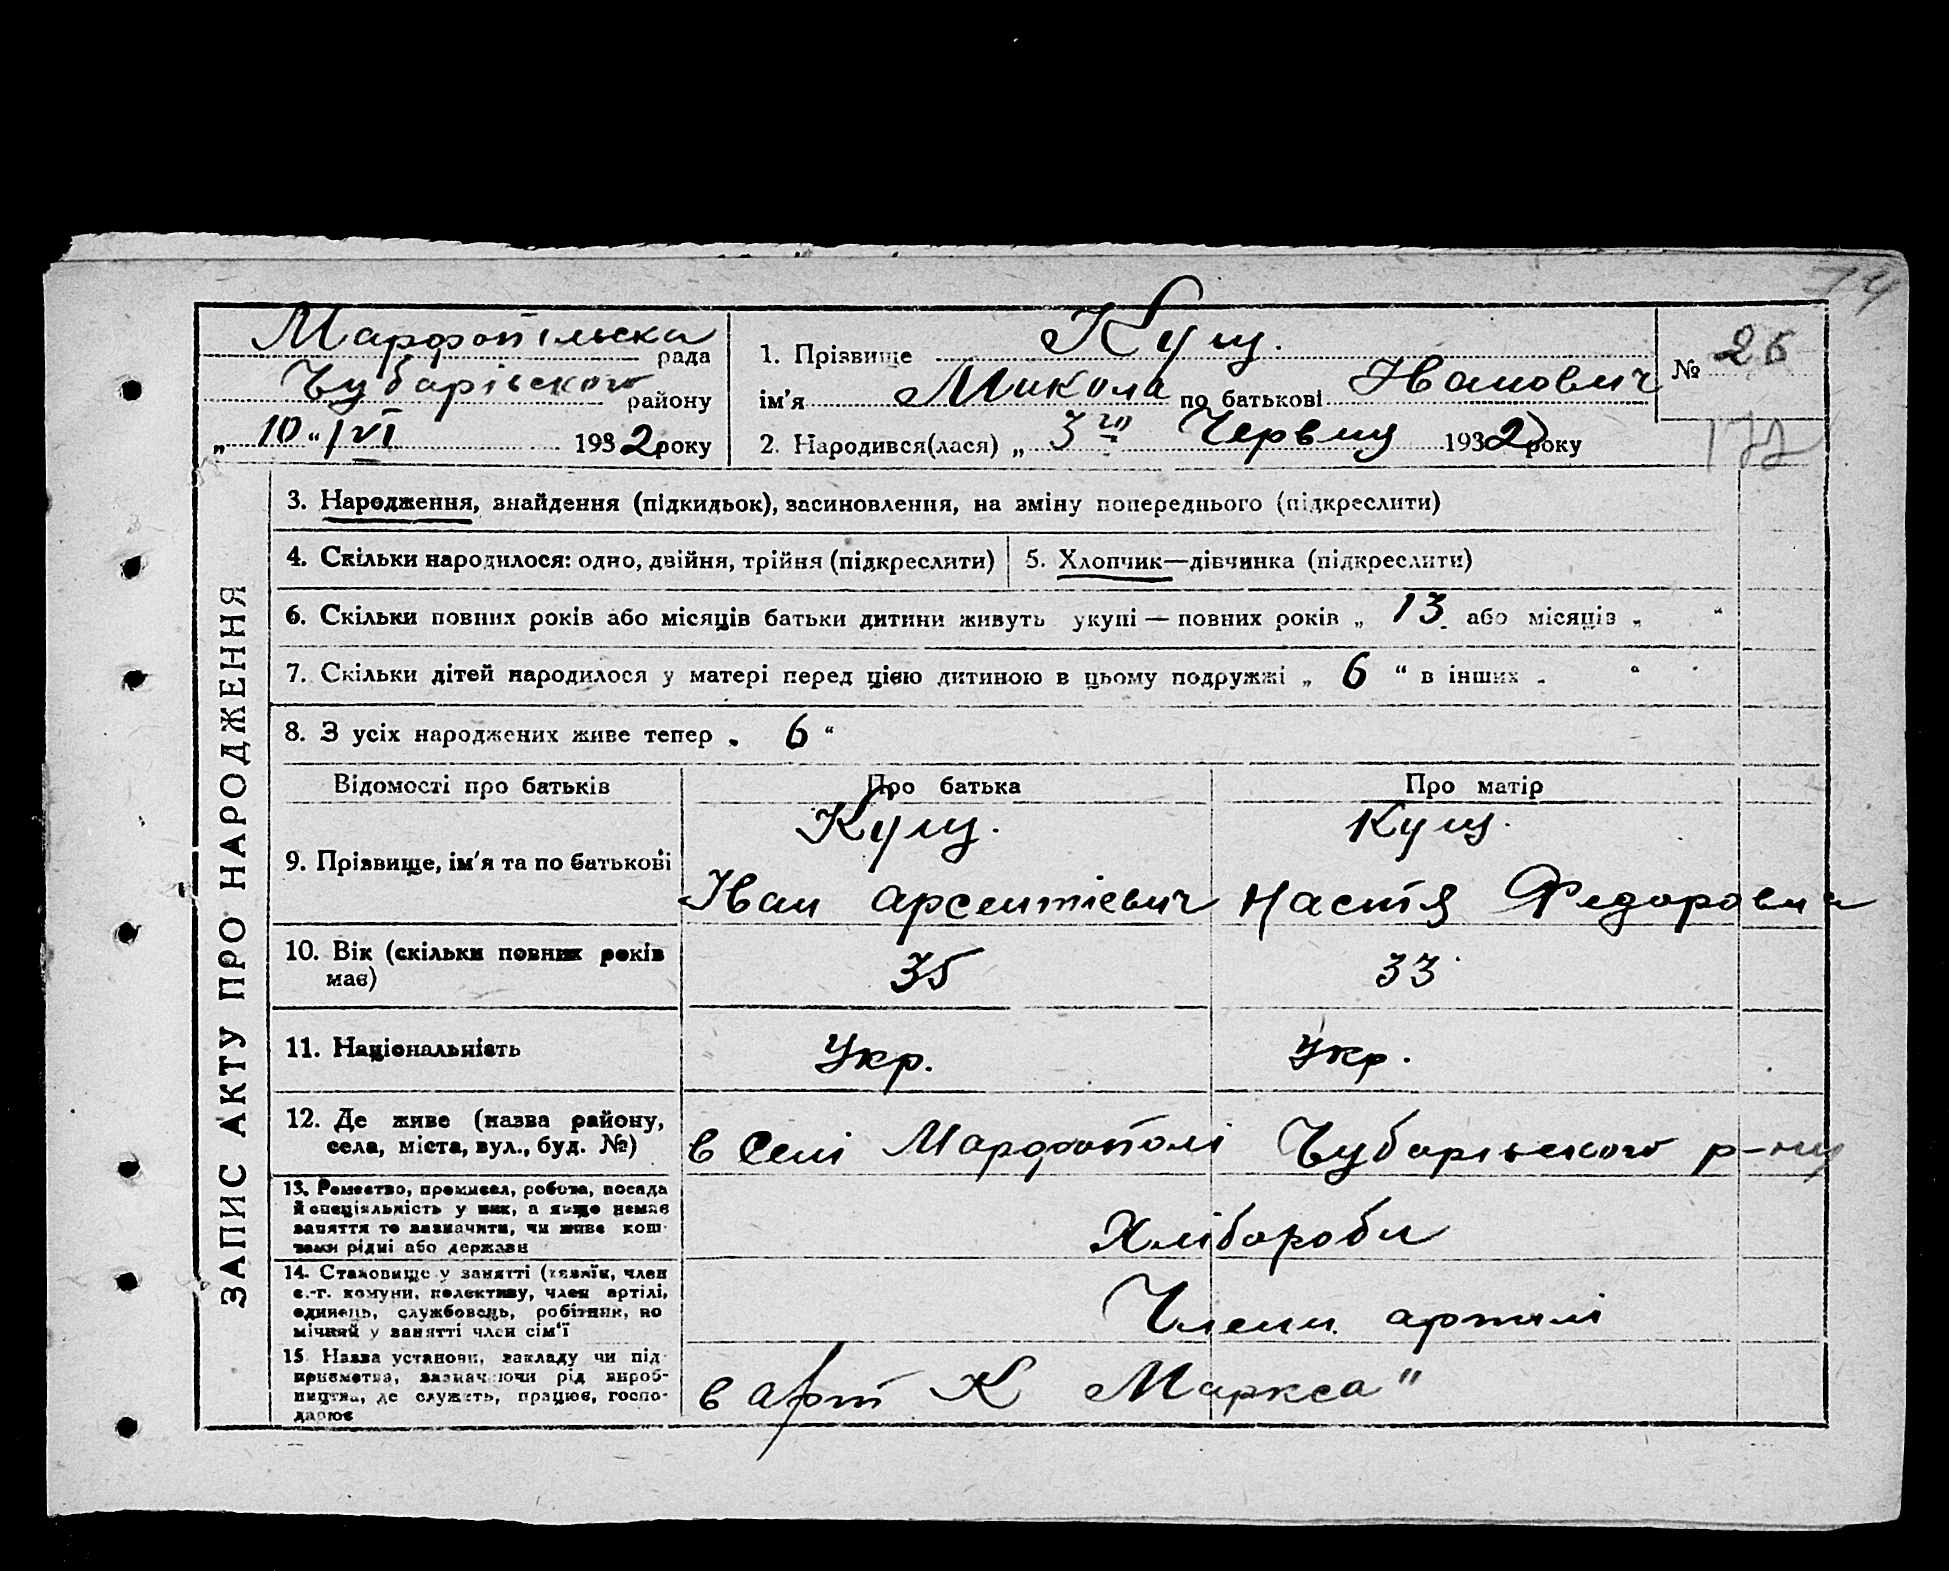 74
Марфопільска рада
Чубарівского району
„ 10 “ VI 1932 року
1. Прізвище Кущ.
ім'я Микола по батькові Іванович
2. Народився(лася) „ 3го Червня 1932 року
№ 26
172
ЗАПИС АКТУ ПРО НАРОДЖЕННЯ
3. Народження, знайдення (підкидьок), засиновлення, на зміну попереднього (підкреслити)
4. Скільки народилося: одно, двійня, трійня (підкреслити)
5. Хлопчик—дівчинка (підкреслити)
6. Скільки повних років або місяців батьки дитини живуть укупі — повних років „ 13 або місяців „ “
7. Скільки дітей народилося у матері перед цією дитиною в цьому подружжі „ 6 “ в інших „ “
8. З усіх народжених живе тепер „ 6 “
Відомості про батьків
Про батька
Про матір
9. Прізвище, ім'я та по батькові
Кущ.
Іван Арсентієвич
Кущ.
Настя Федоровна
10. Вік (скільки повних років
має)
35
33
11. Національність
Укр.
Укр.
12. Де живе (назва району,
села, міста, вул., буд. №)
в Селі Марфополі Чубарівского р-ну
13. Ремество, промисел, робота, посада
й спеціяльність у них, а якщо немає
заняття то зазначити, чи живе кош-
тами рідні або держави
Хлібороби
14. Становище у занятті (хазяїн, член
с.-г. комуни, колективу, член артілі,
одинець, службовець, робітник, по
мічний у занятті член сім'ї
Члени артілі
15. Назва установи, закладу чи під-
приємства, зазначаючи рід вироб-
ництва, де служить, працює, госпо-
дарює
в арт К Маркса"